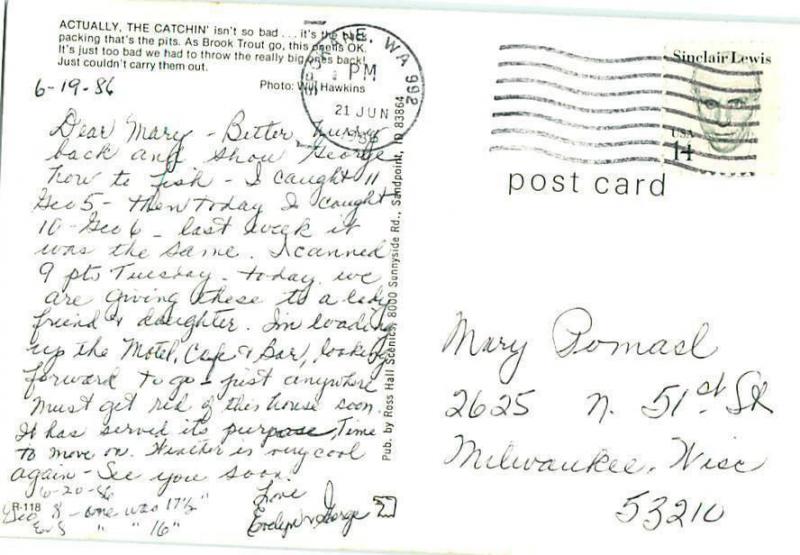 ACTUALLY, THE CATCHIN' isn't so bad . . . it's the
packing that's the pits. As Brook Trout go, this opens OK.
It's just too bad we had to throw the really big ones back!
Just couldn't carry them out.
Photo: Will Hawkins
6-19-86
Dear Mary - Better hurry
back and show George
how to fish - I caught 11
Geo 5 - then today I caught
10 - Geo 6 - last week it
was the same. I canned
9 pts Tuesday - today we
are giving these to a lady
friend & daughter. I'm loading
up the Motel, Cafe & Bar, looking
forward to go - just anywhere
must get rid of this house soon.
It has served its purpose, Time
to move on. Weather is very cool
again - See you soon.
Love
Evelyn & George
6-20-86
R-118
Geo 8 - one was 17½"
Ev 8 " " 16"
Pub. by Ross Hall Scenics, 8000 Sunnyside Rd., Sandpoint, ID 83864
WA 992
PM
21 JUN
1986
Sinclair Lewis
USA
14
post card
Mary
2625 N. 51st St
Milwaukee, Wisc
53210